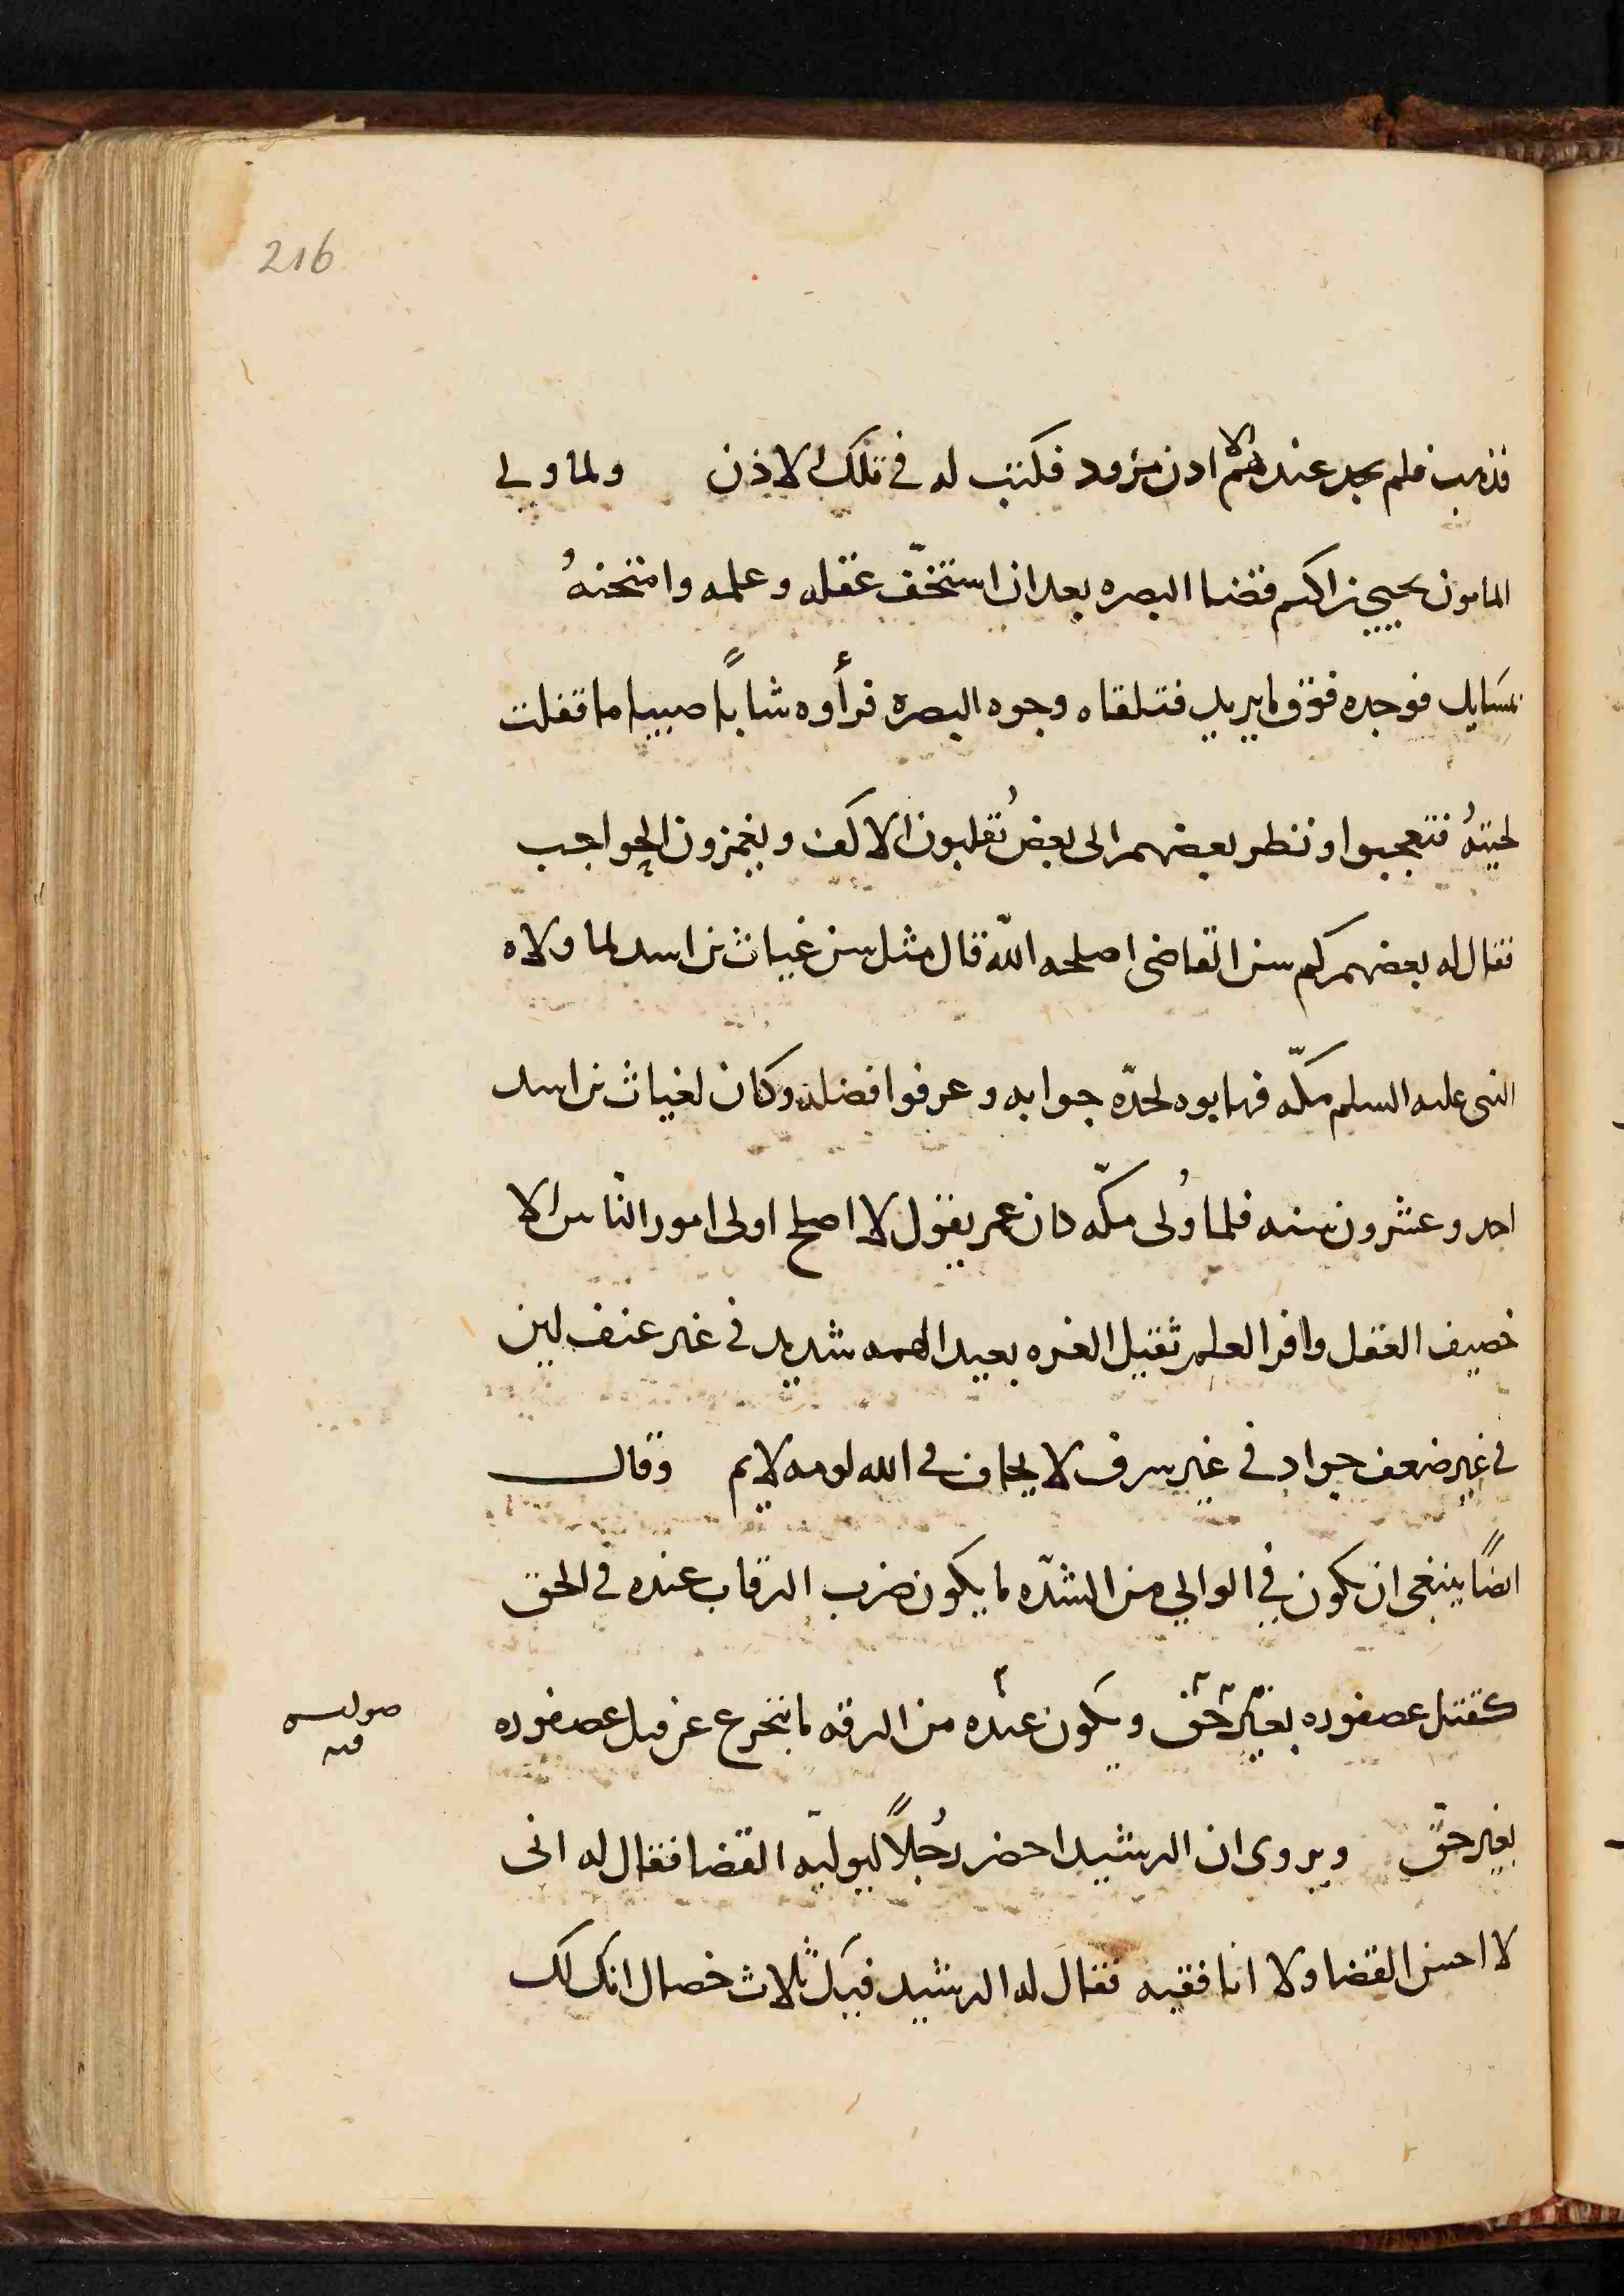 216
فذهب فلم يجد عندهم الا اذن مزود فكتب له في تلك الاذن ولما ولى
المامون يحيى بن اكثم قضا البصره بعد ان استخف عقله وعلمه وامتحنهُ
بمسَايل فوجده فوق ما يريد فتلقاه وجوه البصرة فرأوه شاباً صبيا ما تفلت
لحيتهُ فتعجبوا ونظر بعضهم الى بعض يُقلبون الاكف ويغمزون الحواجب
فقال له بعضهم كم سن القاضى اصلحه اللّه قال مثل سن غياث بن اسد لما ولاه
النبى عليه السلم مكّه فهابوه لحدّه جوابه وعرفوا فضله وكان لغياث بن اسد
احد وعشرون سنه فلما وُلى مكّه كان عمر يقول لا اصلح اولى امور النّاس الا
خصيف العقل وافر العلم ثقيل الغره بعيد الهمه شديد في غير عنف لين
في غير ضعف جواد في غير سرف لا يخاف في الله لومه لايم وقال
ايضًا ينبغى ان يكون في الوالي من الشدّه ما يكون ضرب الرقاب عنده في الحق
كقتل عصفوره بغير حق ويكون عنده من الرقه ما يتحرج عن قتل عصفوره
بغير حقّ ويروى ان الرشيد احضر رجُلاً ليوليّه القضا فقال له انى
لا احسن القضا ولا انا فقيه فقال له الرشيد فيك ثلاث خصال انك لك